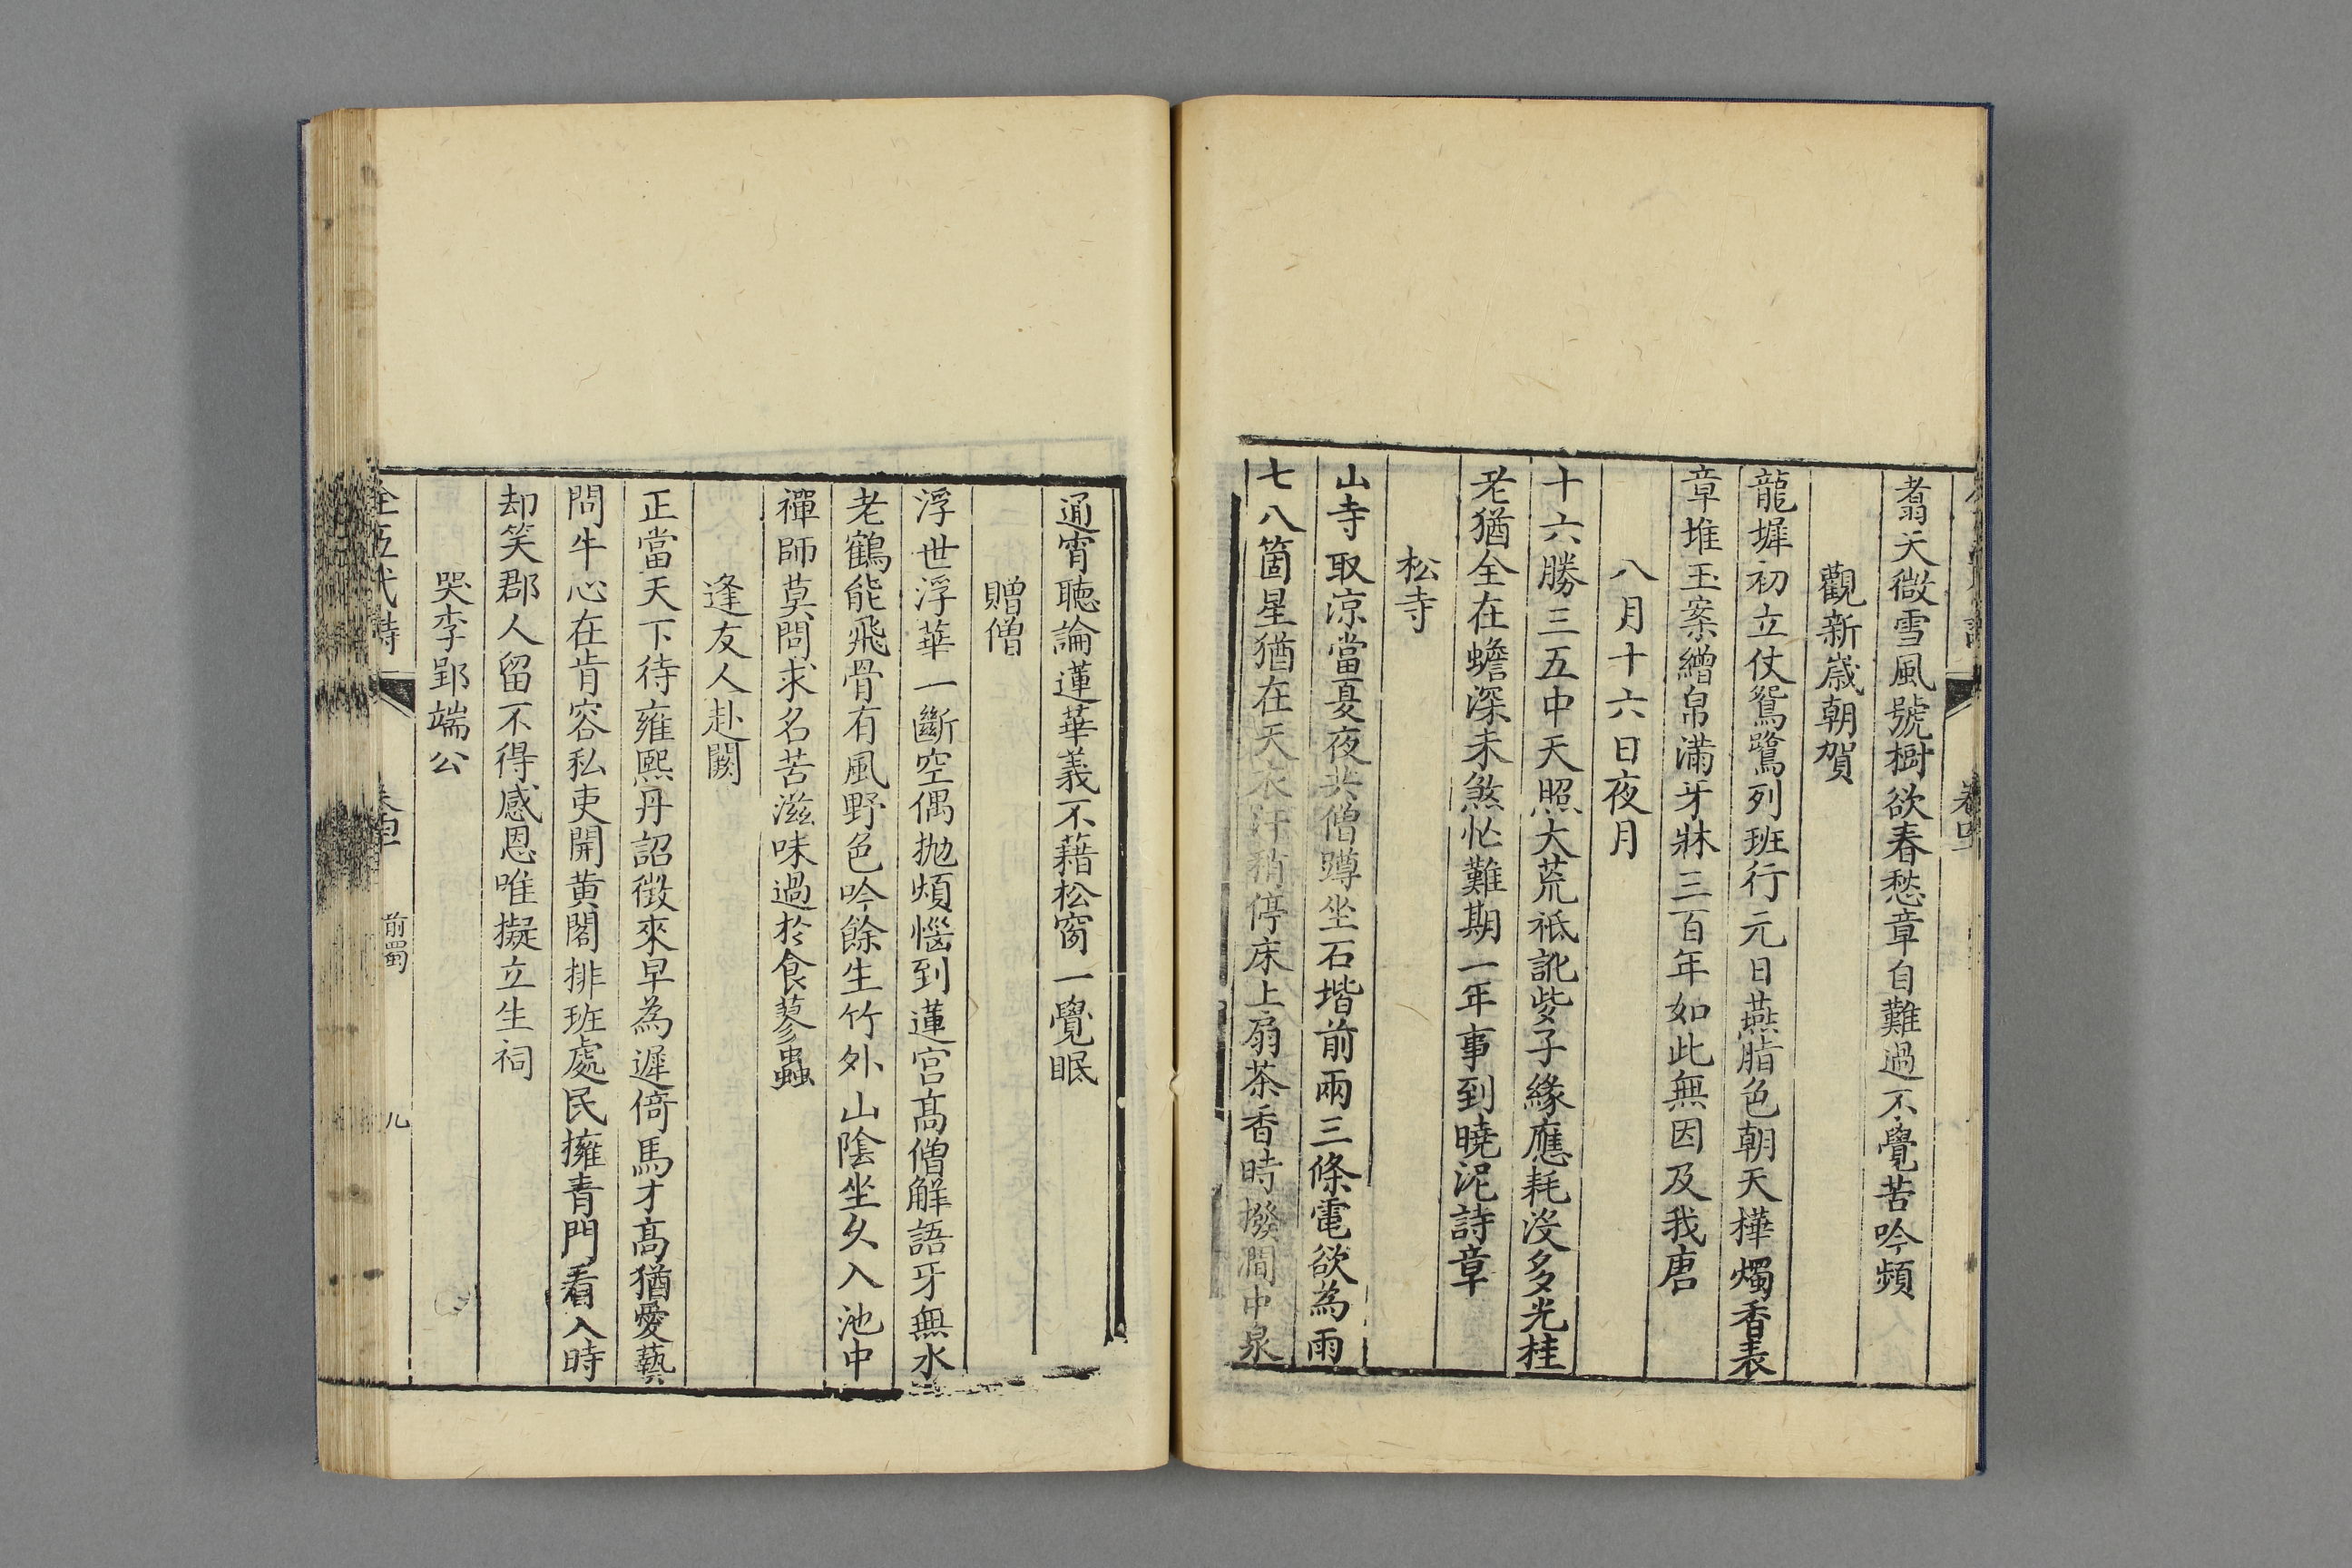 翥天微雪風號樹欲春愁章自難過不覺苦吟頻
觀新歲朝賀
龍墀初立仗鴛鷺列班行元日燕脂色朝天樺燭香表
章堆玉案繒帛滿牙牀三百年如此無因及我唐
八月十六日夜月
十六勝三五中天照大荒祗訛些子緣應耗沒多光桂
老猶全在蟾深未煞忙難期一年事到曉泥詩章
松寺
山寺取涼當夏夜共僧蹲坐石堦前兩三條電欲為雨
七八箇星猶在天衣汗稍停床上扇茶香時撥澗中泉
通宵聽論蓮華義不藉松窗一覺眠
贈僧
浮世浮華一斷空偶拋煩惱到蓮宮高僧解語牙無水
老鶴能飛骨有風野色吟餘生竹外山陰坐久入池中
禪師莫問求名苦滋味過於食蓼蟲
逢友人赴闕
正當天下待雍熙丹詔徵來早為遲倚馬才高猶愛藝
問牛心在肯容私吏開黃閣排班處民擁青門看入時
却笑郡人留不得感恩唯擬立生祠
哭李郢端公
全五代詩 卷四十 前蜀 九